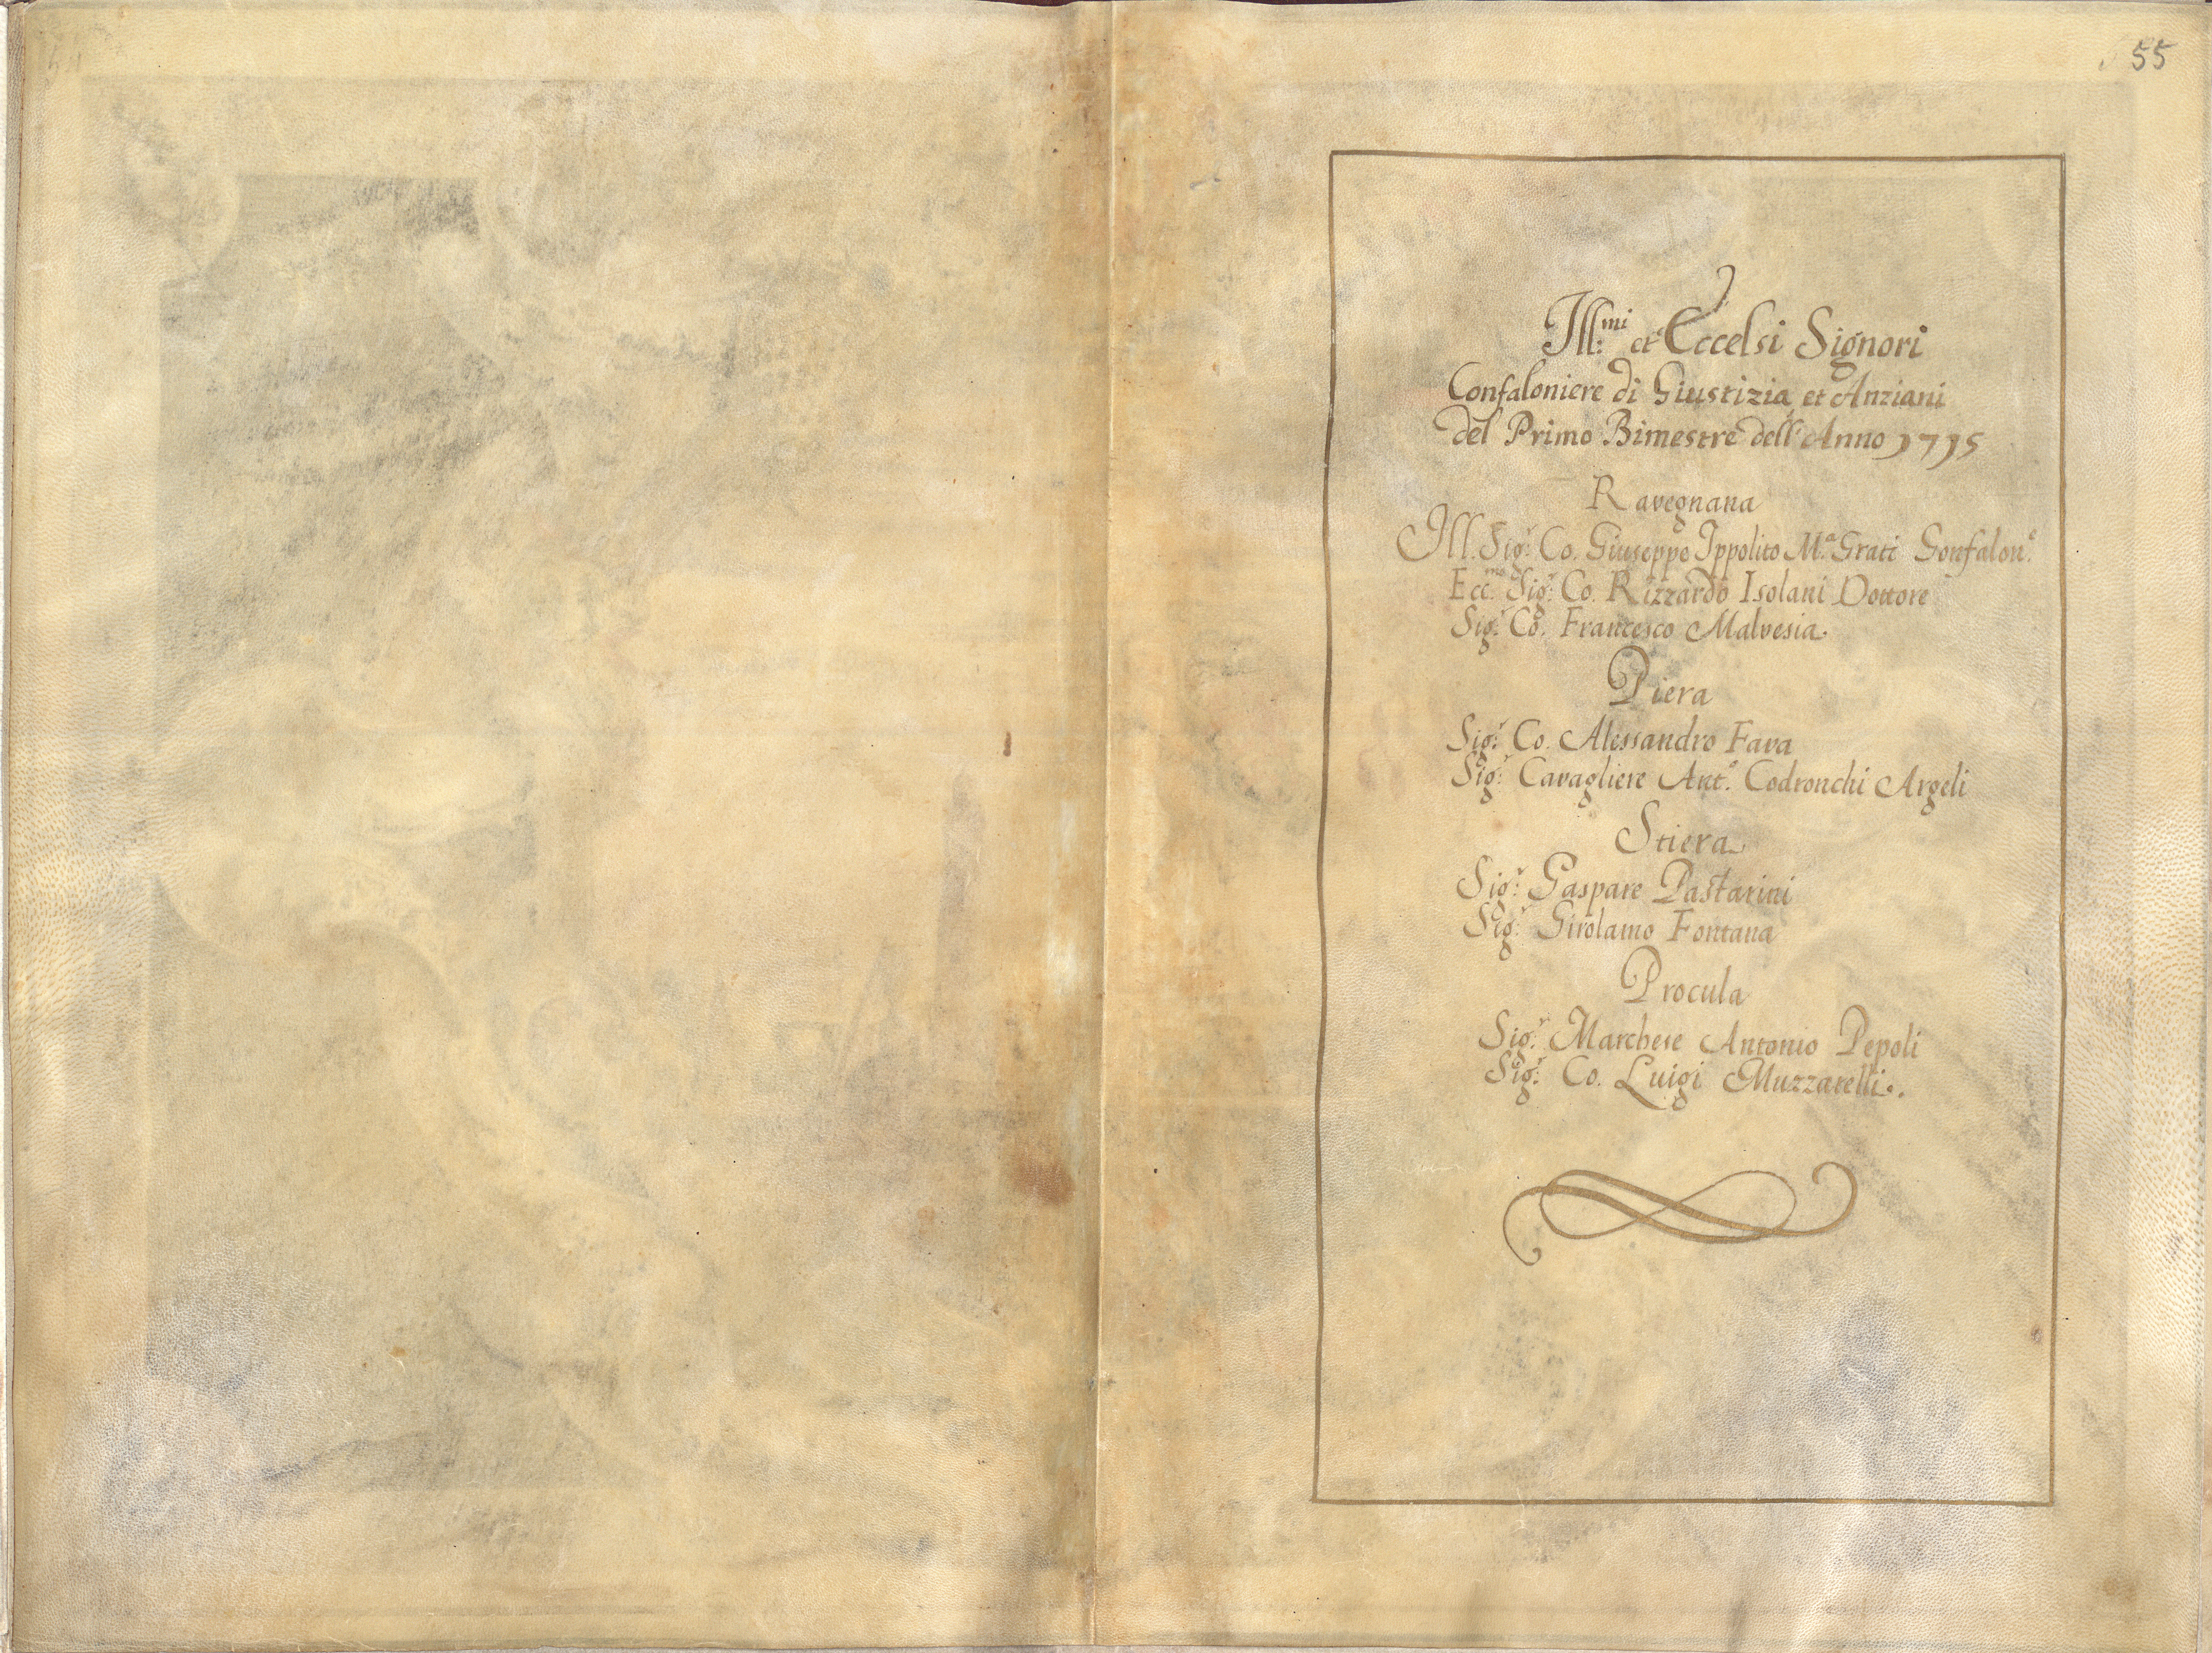 55
Ill:mi et Eccelsi Signori
Confaloniere di Giustizia et Anziani
del Primo Bimestre dell'Anno 1715
Ravegnana
Ill. Sig.r Co. Giuseppe Ippolito M.a Grati Gonfalon.e
Ecc.mo Sig.r Co. Rizzardo Isolani Dottore
Sig.r Co. Francesco Malvesia.
Piera
Sig.r Co. Alessandro Fava
Sig.r Cavagliere Ant.o Codronchi Argeli
Stiera
Sig.r Gaspare Pastarini
Sig.r Girolamo Fontana
Procula
Sig.r Marchese Antonio Pepoli
Sig.r Co. Luigi Muzzarelli.